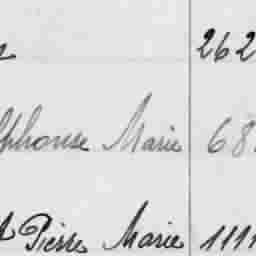 262
Alphonse Marie 68
Pierre Marie 1111